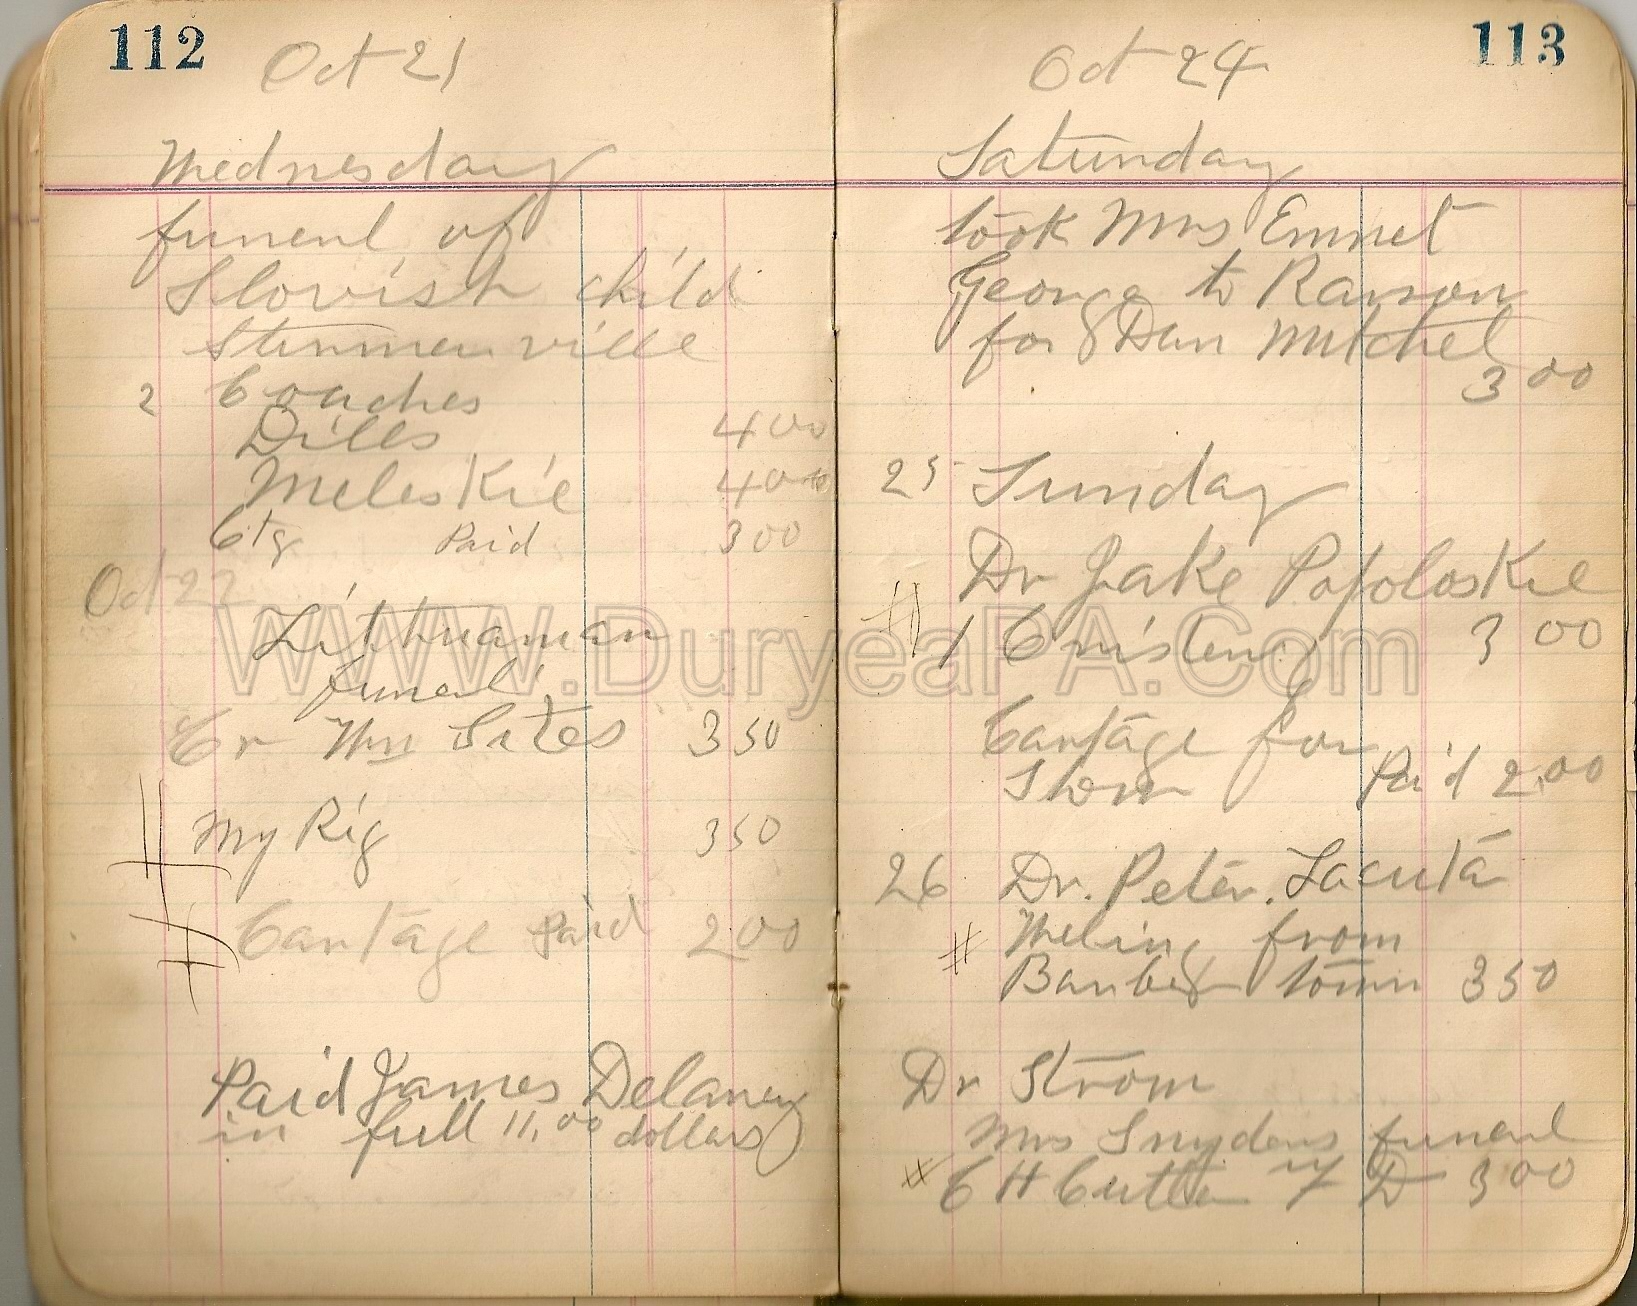 112
Oct 21
Wednesday
funeral of
Slovish child
Stunmerville
2 Coaches
Dills 400
Meleskie 400
Ctg Paid 300
Oct 22
Lithuanian
funeral
Cr Wm Sites 350
My Rig 350
Cartage Paid 200
Paid James Delaney
in full 11,00 dollars
113
Oct 24
Saturday
took Mrs Emmet
George to Ranson
for Dan Mitchel
3 00
25 Sunday
Dr Jake Popoloskie
# 1 Cristen 3 00
Cartage for
Paid 2,00
26 Dr. Peter. Lacuta
# from
town 350
Dr Strom
Mrs Snyders funeral
# C H Cutter D 300
WWW.DuryeaPA.Com